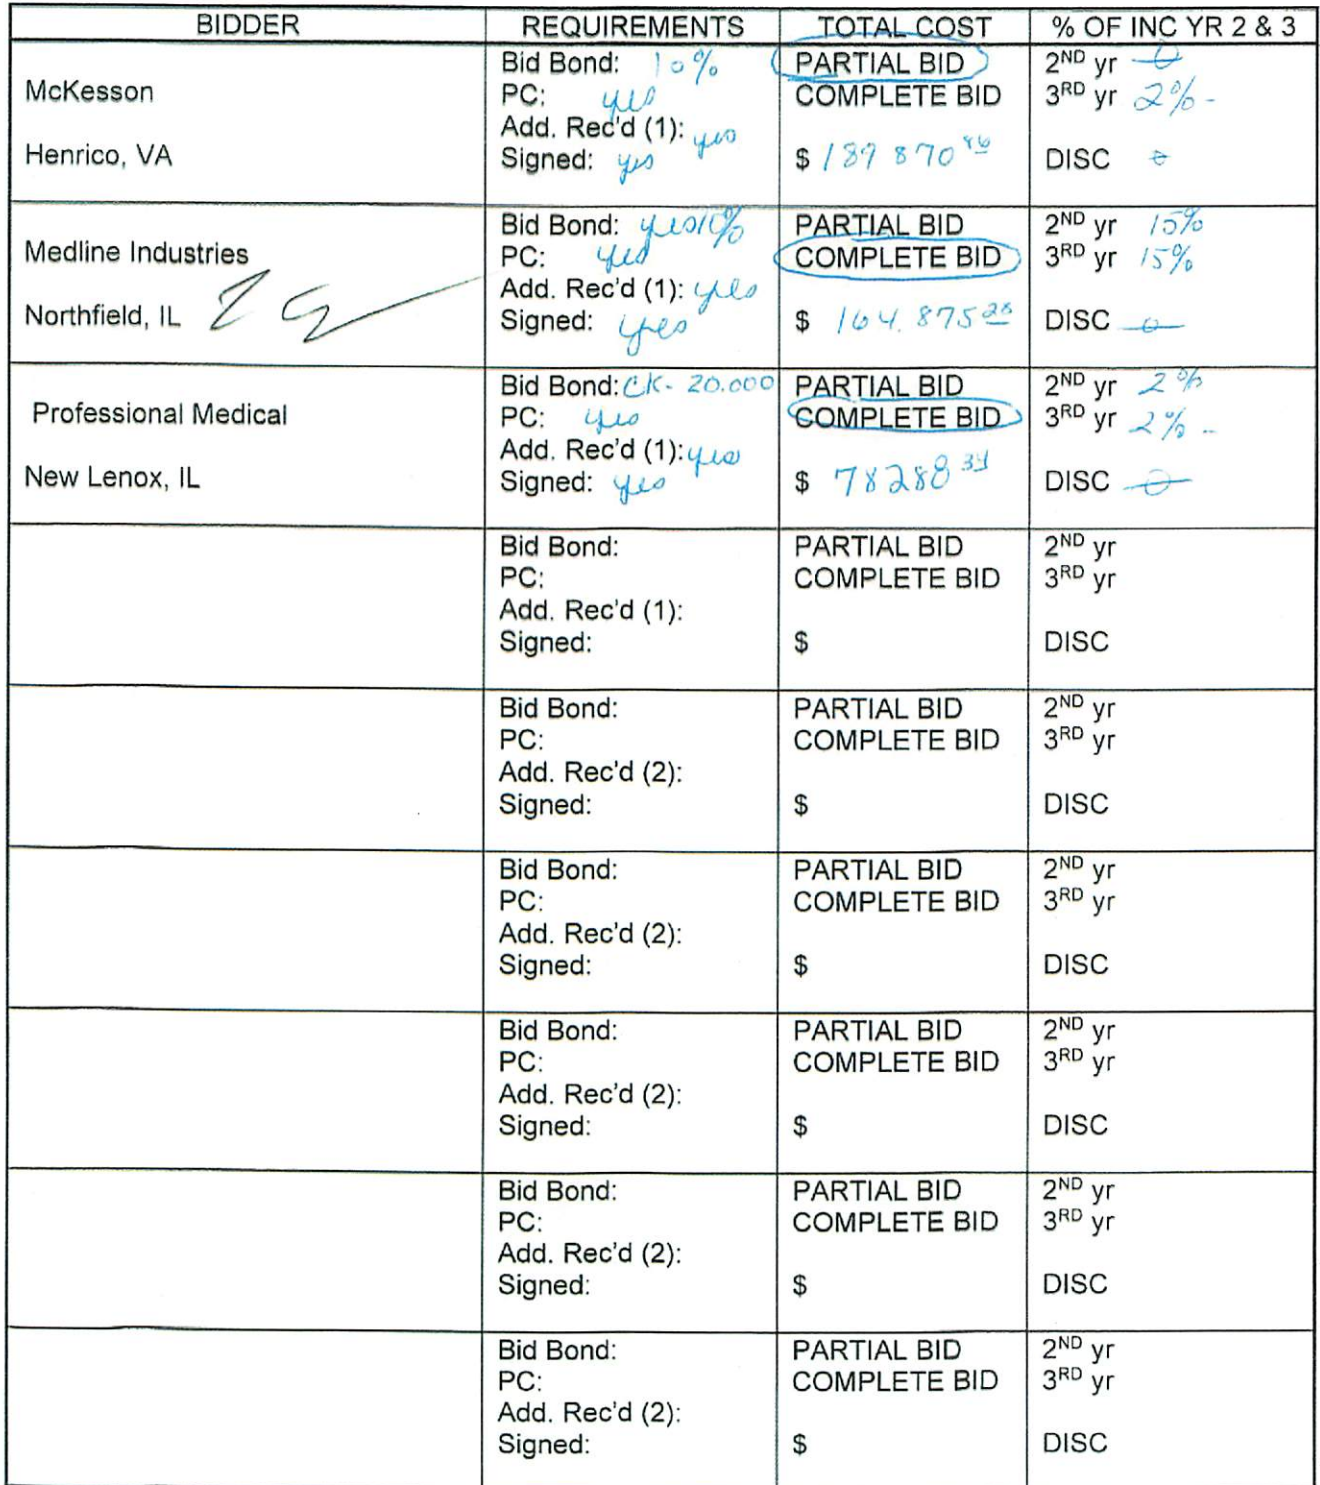 BIDDER REQUIREMENTS TOTAL COST % OF INC YR 2 & 3
McKesson
Henrico, VA
Bid Bond: 10%
PC: yes
Add. Rec'd (1): yes
Signed: yes
PARTIAL BID
COMPLETE BID
$ 189 870 86
2ND yr 0
3RD yr 2% -
DISC 0
Medline Industries
Northfield, IL
Bid Bond: yes 10%
PC: yes
Add. Rec'd (1): yes
Signed: yes
PARTIAL BID
COMPLETE BID
$ 164.875 28
2ND yr 15%
3RD yr 15%
DISC 0
Professional Medical
New Lenox, IL
Bid Bond: CK- 20.000
PC: yes
Add. Rec'd (1): yes
Signed: yes
PARTIAL BID
COMPLETE BID
$ 78288 34
2ND yr 2%
3RD yr 2% -
DISC 0
Bid Bond:
PC:
Add. Rec'd (1):
Signed:
PARTIAL BID
COMPLETE BID
$
2ND yr
3RD yr
DISC
Bid Bond:
PC:
Add. Rec'd (2):
Signed:
PARTIAL BID
COMPLETE BID
$
2ND yr
3RD yr
DISC
Bid Bond:
PC:
Add. Rec'd (2):
Signed:
PARTIAL BID
COMPLETE BID
$
2ND yr
3RD yr
DISC
Bid Bond:
PC:
Add. Rec'd (2):
Signed:
PARTIAL BID
COMPLETE BID
$
2ND yr
3RD yr
DISC
Bid Bond:
PC:
Add. Rec'd (2):
Signed:
PARTIAL BID
COMPLETE BID
$
2ND yr
3RD yr
DISC
Bid Bond:
PC:
Add. Rec'd (2):
Signed:
PARTIAL BID
COMPLETE BID
$
2ND yr
3RD yr
DISC